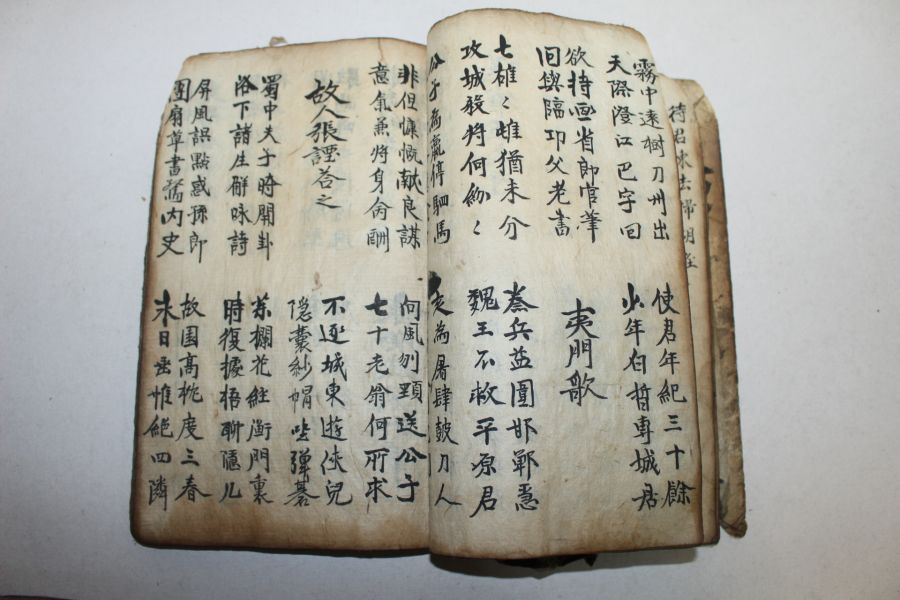 霧中遠樹刀州出
天際澄江巴字回
使君年紀三十餘
少年白晳專城居
欲持畫省郎官筆
回與臨邛父老書
夷門歌
七雄〻雄猶未分
攻城殺將何紛〻
秦兵益圍邯鄲急
魏王不救平原君
公子為嬴停駟馬
亥為屠肆鼓刀人
非但慷慨獻良謀
意氣兼將身命酬
向風刎頸送公子
七十老翁何所求
故人張諲答之
不逐城東遊俠兒
隱囊紗帽坐彈碁
蜀中夫子時開卦
洛下諸生解咏詩
藥欄花徑衡門裏
時復據梧聊隱几
屏風誤點惑孫郎
團扇草書驚內史
故園高枕度三春
永日垂帷絕四隣